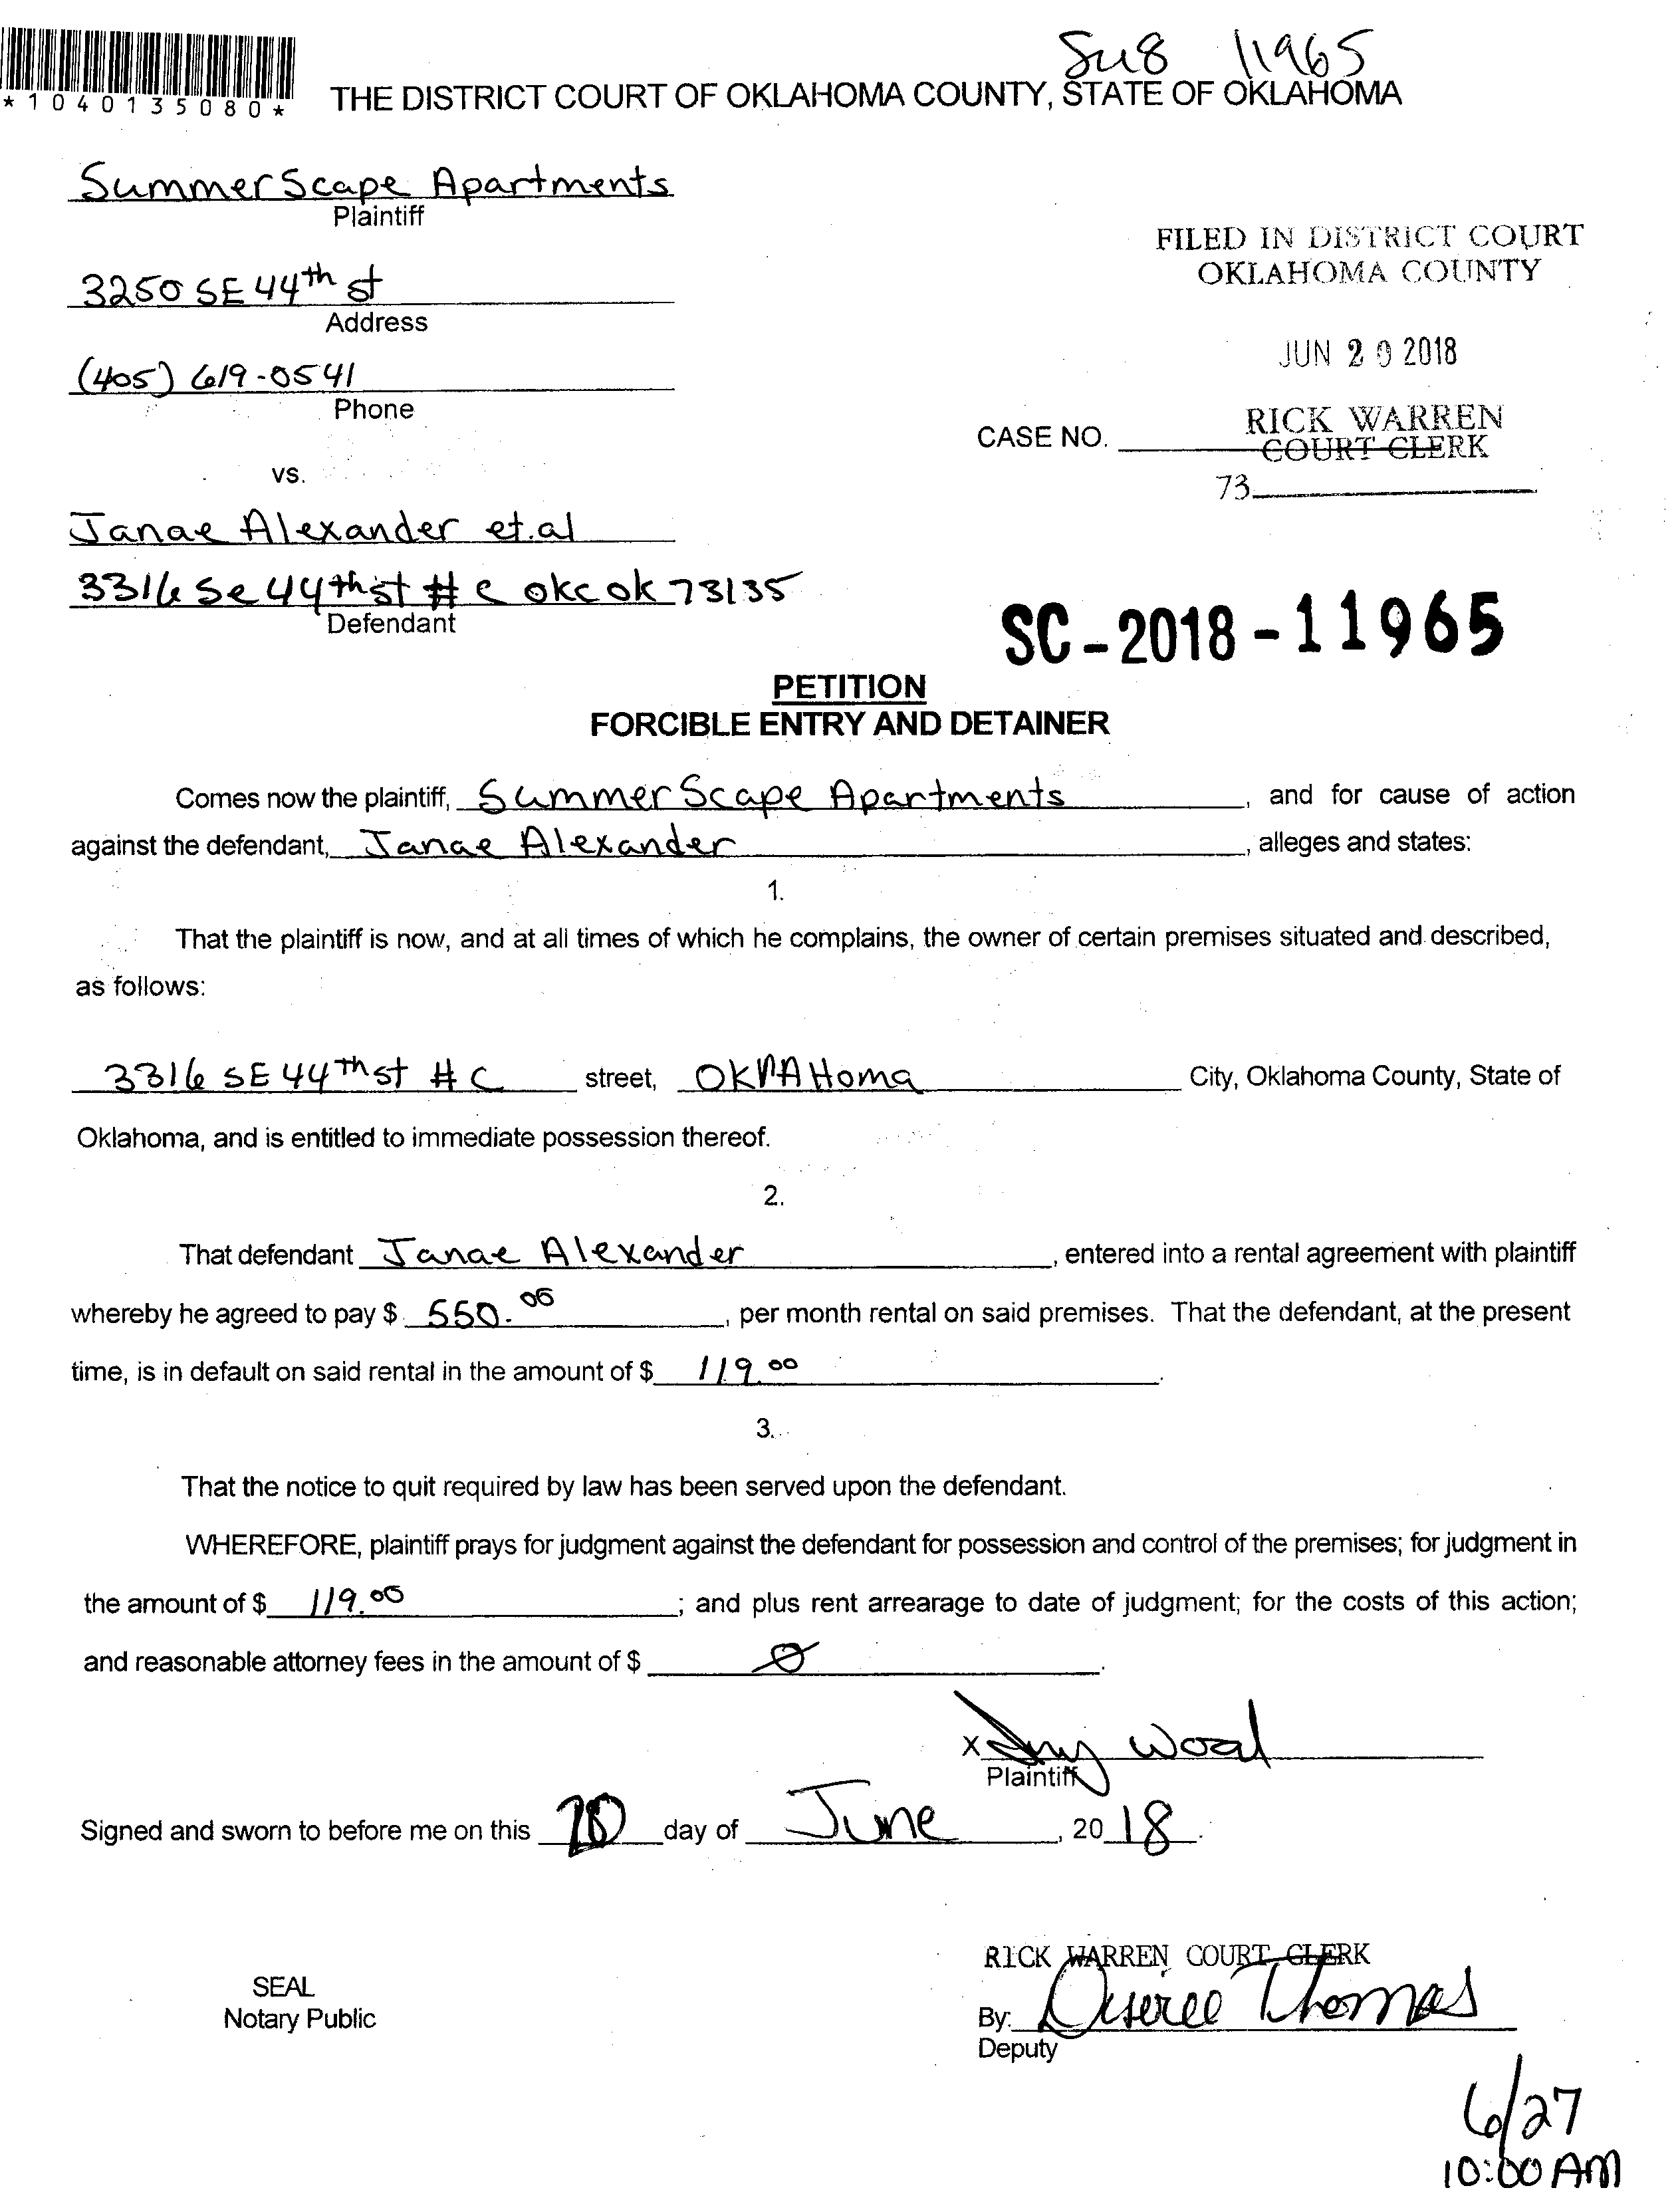 Su8 11965
*1040135080*
THE DISTRICT COURT OF OKLAHOMA COUNTY, STATE OF OKLAHOMA
SummerScape Apartments
Plaintiff
FILED IN DISTRICT COURT
OKLAHOMA COUNTY
3250 SE 44th st
Address
JUN 20 2018
(405) 619-0541
Phone
RICK WARREN
CASE NO.
COURT CLERK
vs.
73
Janae Alexander et.al
3316 Se 44th st # C okc ok 73135
Defendant
SC-2018-11965
PETITION
FORCIBLE ENTRY AND DETAINER
Comes now the plaintiff, SummerScape Apartments, and for cause of action
against the defendant, Janae Alexander, alleges and states:
1.
That the plaintiff is now, and at all times of which he complains, the owner of certain premises situated and described,
as follows:
3316 SE 44th st # C street, OKlAHoma City, Oklahoma County, State of
Oklahoma, and is entitled to immediate possession thereof.
2.
That defendant Janae Alexander, entered into a rental agreement with plaintiff
whereby he agreed to pay $ 550.00, per month rental on said premises. That the defendant, at the present
time, is in default on said rental in the amount of $ 119.00.
3.
That the notice to quit required by law has been served upon the defendant.
WHEREFORE, plaintiff prays for judgment against the defendant for possession and control of the premises; for judgment in
the amount of $ 119.00; and plus rent arrearage to date of judgment; for the costs of this action;
and reasonable attorney fees in the amount of $ 0.
X Wood
Plaintiff
Signed and sworn to before me on this 20 day of June, 2018.
RICK WARREN COURT CLERK
SEAL
Notary Public
By: Desiree Thomas
Deputy
6/27
10:00 AM